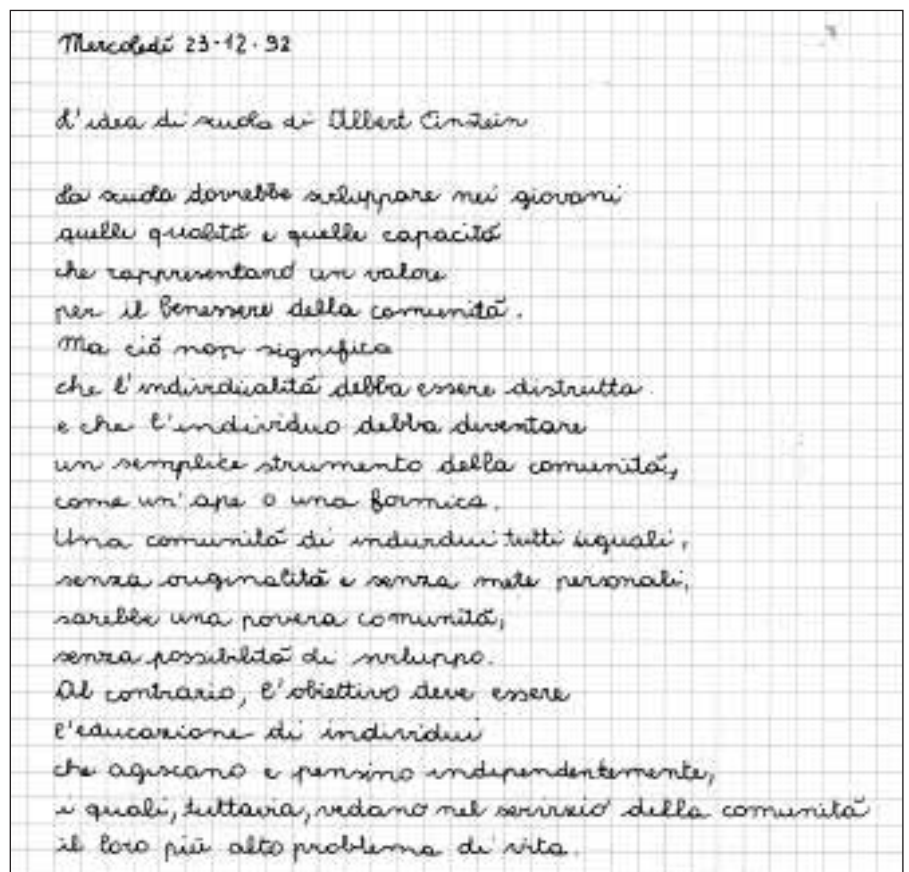 Mercoledí 23-12-92
L'idea di scuola di Albert Einstein
La scuola dovrebbe sviluppare nei giovani
quelle qualità e quelle capacità
che rappresentano un valore
per il benessere della comunità.
Ma ciò non significa
che l'individualità debba essere distrutta
e che l'individuo debba diventare
un semplice strumento della comunità,
come un'ape o una formica.
Una comunità di individui tutti uguali,
senza originalità e senza mete personali,
sarebbe una povera comunità,
senza possibilità di sviluppo.
Al contrario, l'obiettivo deve essere
l'educazione di individui
che agiscano e pensino indipendentemente,
i quali, tuttavia, vedano nel servizio della comunità
il loro più alto problema di vita.